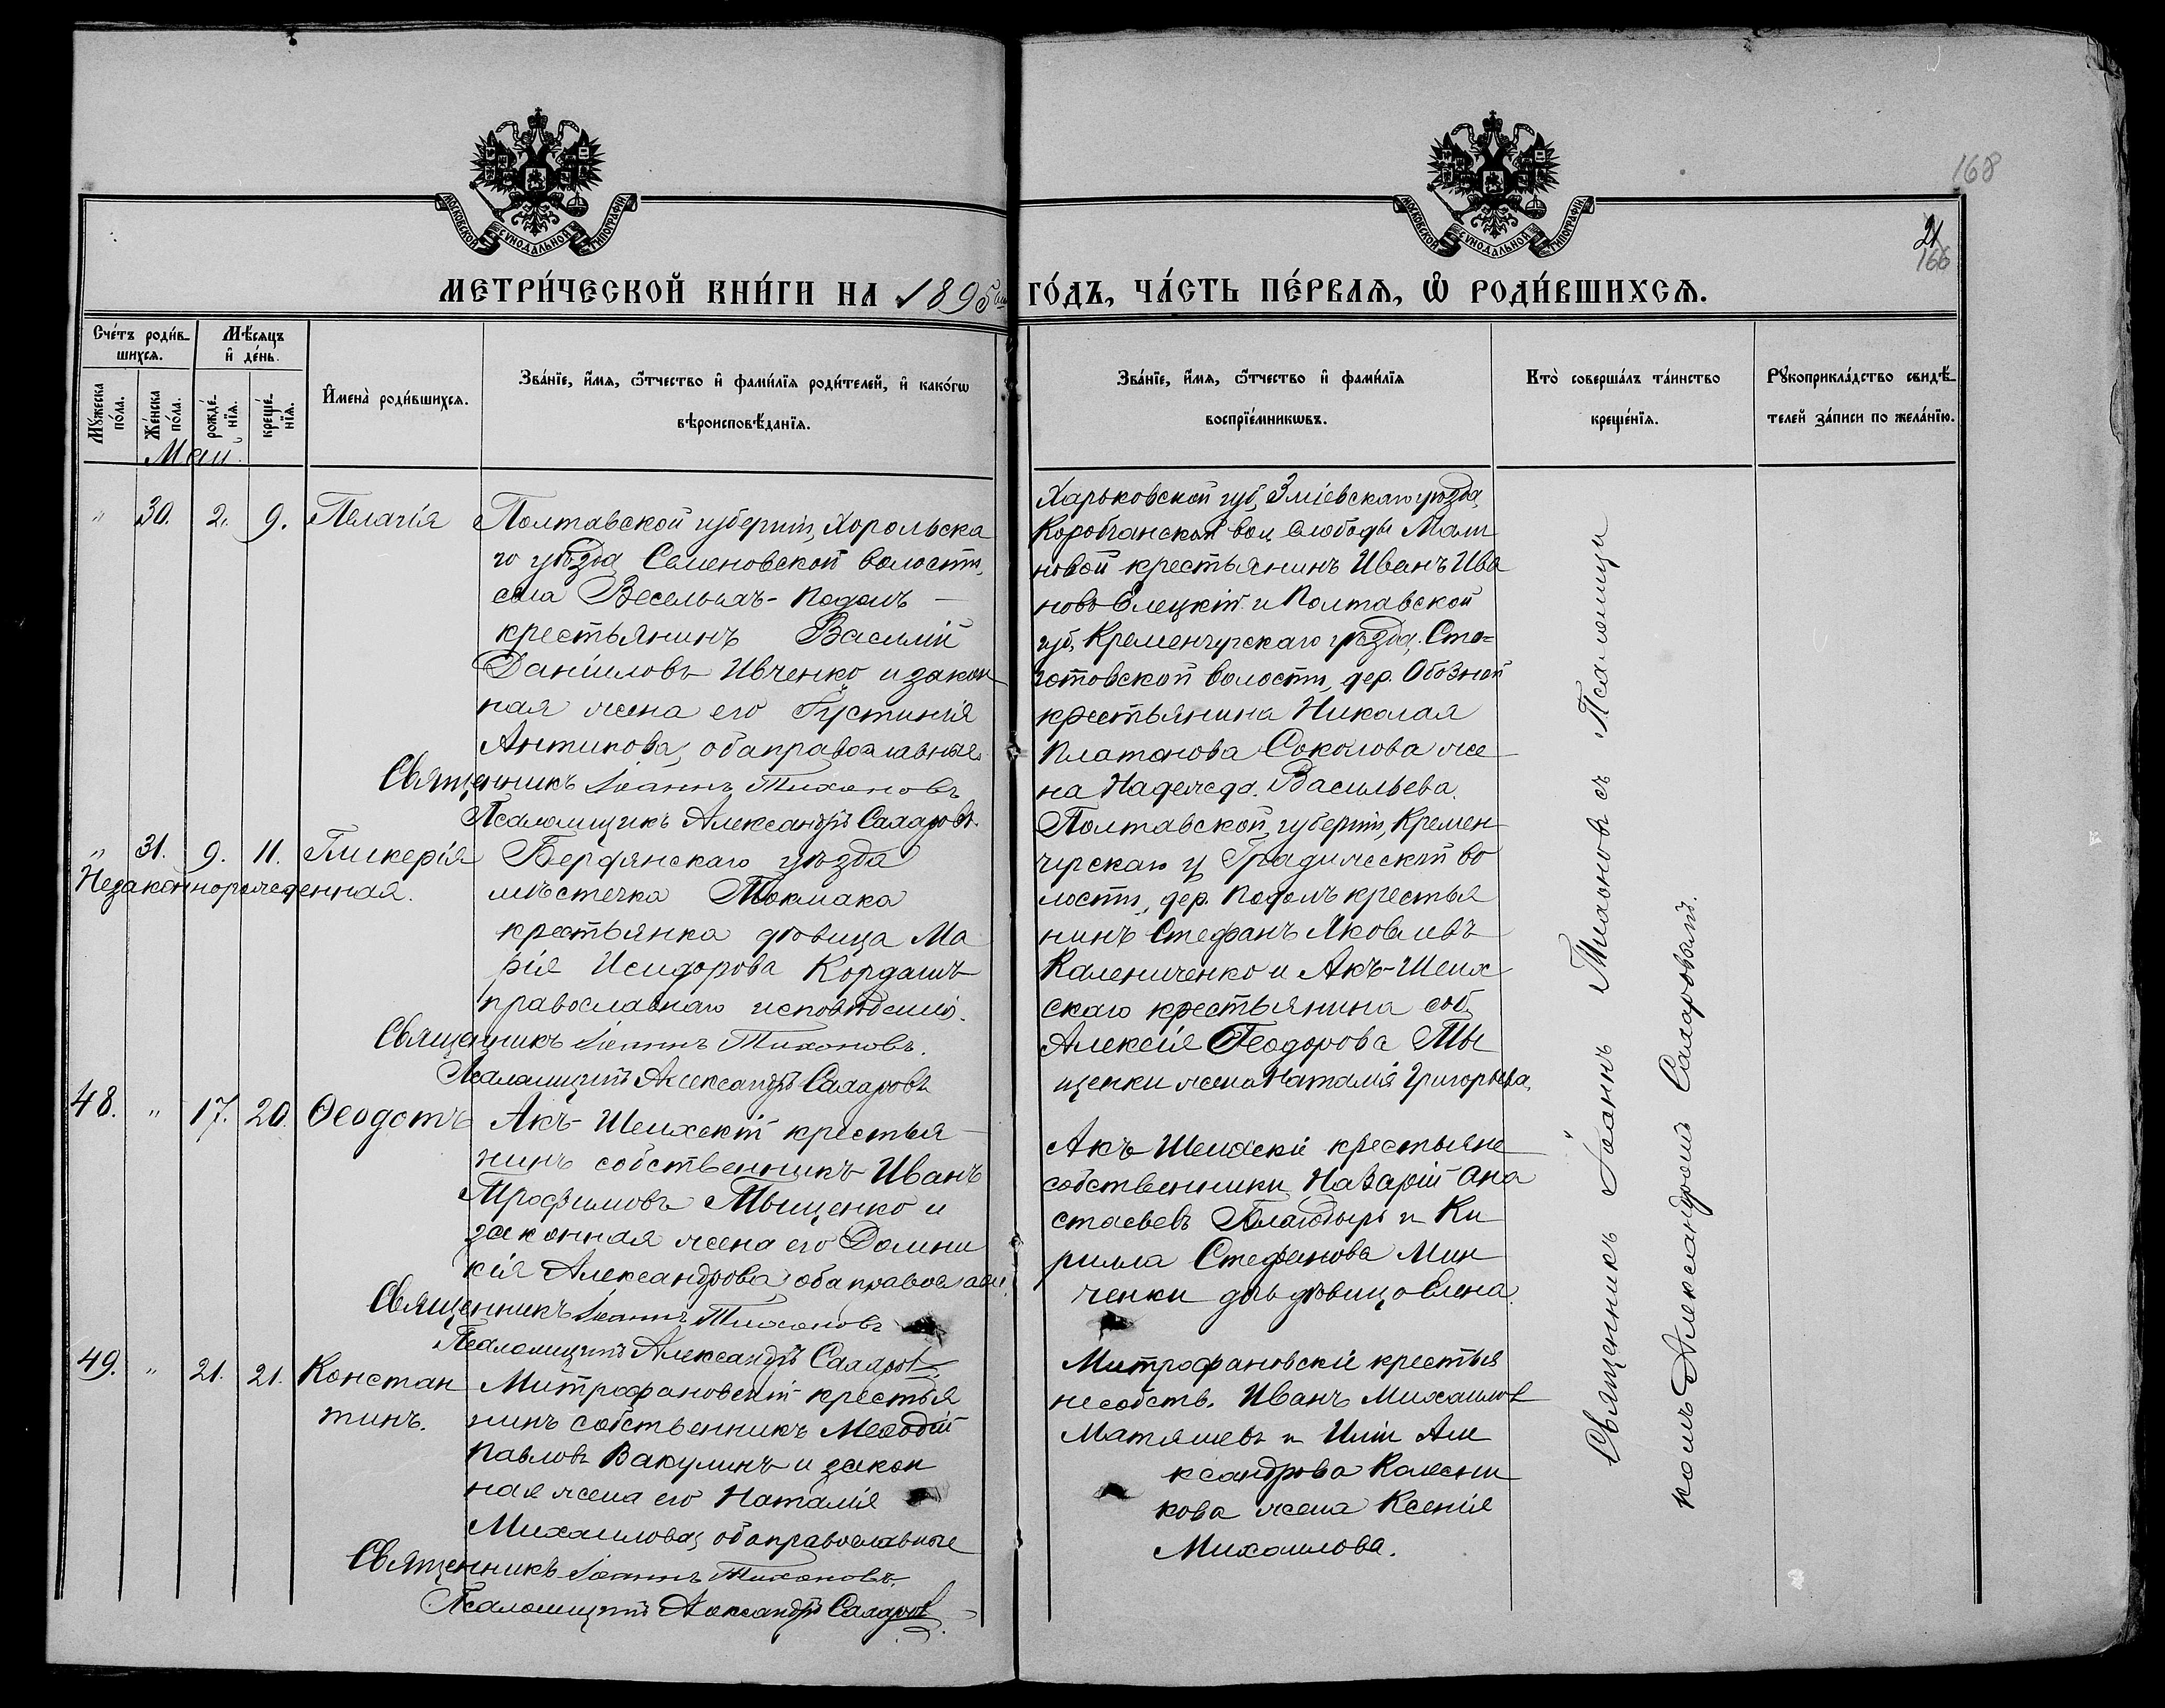 168
21
166
МОСКОВСКОЙ СѴНОДАЛЬНОЙ ТИПОГРАФІИ
МОСКОВСКОЙ СѴНОДАЛЬНОЙ ТИПОГРАФІИ
МЕТРИ́ЧЕСКОЙ КНИ́ГИ НА 1895 ГО́ДЪ, ЧА́СТЬ ПЕ́РВАѦ, Ѡ҆ РОДИ́ВШИХСѦ.
Сче́тъ роди́в-
шихсѧ.
Мѣ́сѧцъ
и҆ де́нь.
Мꙋ́жеска по́ла.
Же́нска по́ла.
рожде́-нїѧ.
креще́-нїѧ.
И҆мена̀ роди́вшихсѧ.
Зва́нїе, и҆́мѧ, ѻ҆́тчество и҆ фами́лїѧ роди́телей, и҆ како́гѡ
вѣроисповѣ́данїѧ.
Зва́нїе, и҆́мѧ, ѻ҆́тчество и҆ фами́лїѧ
воспрїе́мникѡвъ.
Кто̀ соверша́лъ та́инство
креще́нїѧ.
Рꙋкоприкла́дство свидѣ́-
телей за́писи по жела́нїю.
Май.
" 30. 2. 9. Пелагія
Полтавской губерніи, Хорольска
го уѣзда Семеновской волости,
села Веселыхъ-Подолъ —
крестьянинъ Василій
Даніиловъ Ивченко и закон
ная жена его Іустинія
Антипова, оба православные.
Священникъ Іоаннъ Тихоновъ
Псаломщикъ Александръ Сахаровъ.
Харьковской губ, Зміевскаго уѣзда,
Коробчанской вол, слободы Мали
новой крестьянинъ Иванъ Ива
новъ Елецкій и Полтавской
губ, Кременчугскаго уѣзда,
волости, дер. Обозной
крестьянина Николая
Платонова Соколова же
на Надежда Васильева.
" 31. 9. 11. Гликерія
Незаконнорожденная.
Бердянскаго уѣзда
мѣстечка Токмака
крестьянка дѣвица Ма
рія Исидорова Кордашъ
православнаго исповѣданія.
Священникъ Іоаннъ Тихоновъ.
Псаломщикъ Александръ Сахаровъ
Полтавской губерніи, Кремен
чугскаго у Градижской во
лости, дер. Подолъ крестья
нинъ Стефанъ Яковлевъ
Калениченко и Акъ-Шеих
скаго крестьянина соб.
Алексія Ѳеодорова Мы
щенки жена Наталія Григорьева.
48. " 17. 20. Ѳеодотъ
Акъ-Шеихскій крестья
нинъ собственникъ Иванъ
Трофимовъ Мыщенко и
законная жена его Домни
кія Александрова, оба православн.
Священникъ Іоаннъ Тихоновъ
Псаломщикъ Александръ Сахаровъ
Акъ Шеихскіе крестьяне
собственники Назарій Ана
стасьевъ и Ки
рилла Стефанова Мин
ченки дочь дѣвица Елена.
49. " 21. 21. Констан
тинъ.
Митрофановскій крестья
нинъ собственникъ Меѳодій
Павловъ Вакулинъ и закон
ная жена его Наталія
Михаилова, оба православные
Священникъ Іоаннъ Тихоновъ.
Псаломщикъ Александръ Сахаровъ
Митрофановскіе крестья
не собств. Иванъ Михаиловъ
Матяшевъ и Иліи Але
ксандрова Колесни
кова жена Ксенія
Михаилова.
Священникъ Іоаннъ Тихоновъ съ Псаломщи
комъ Александромъ Сахаровымъ.